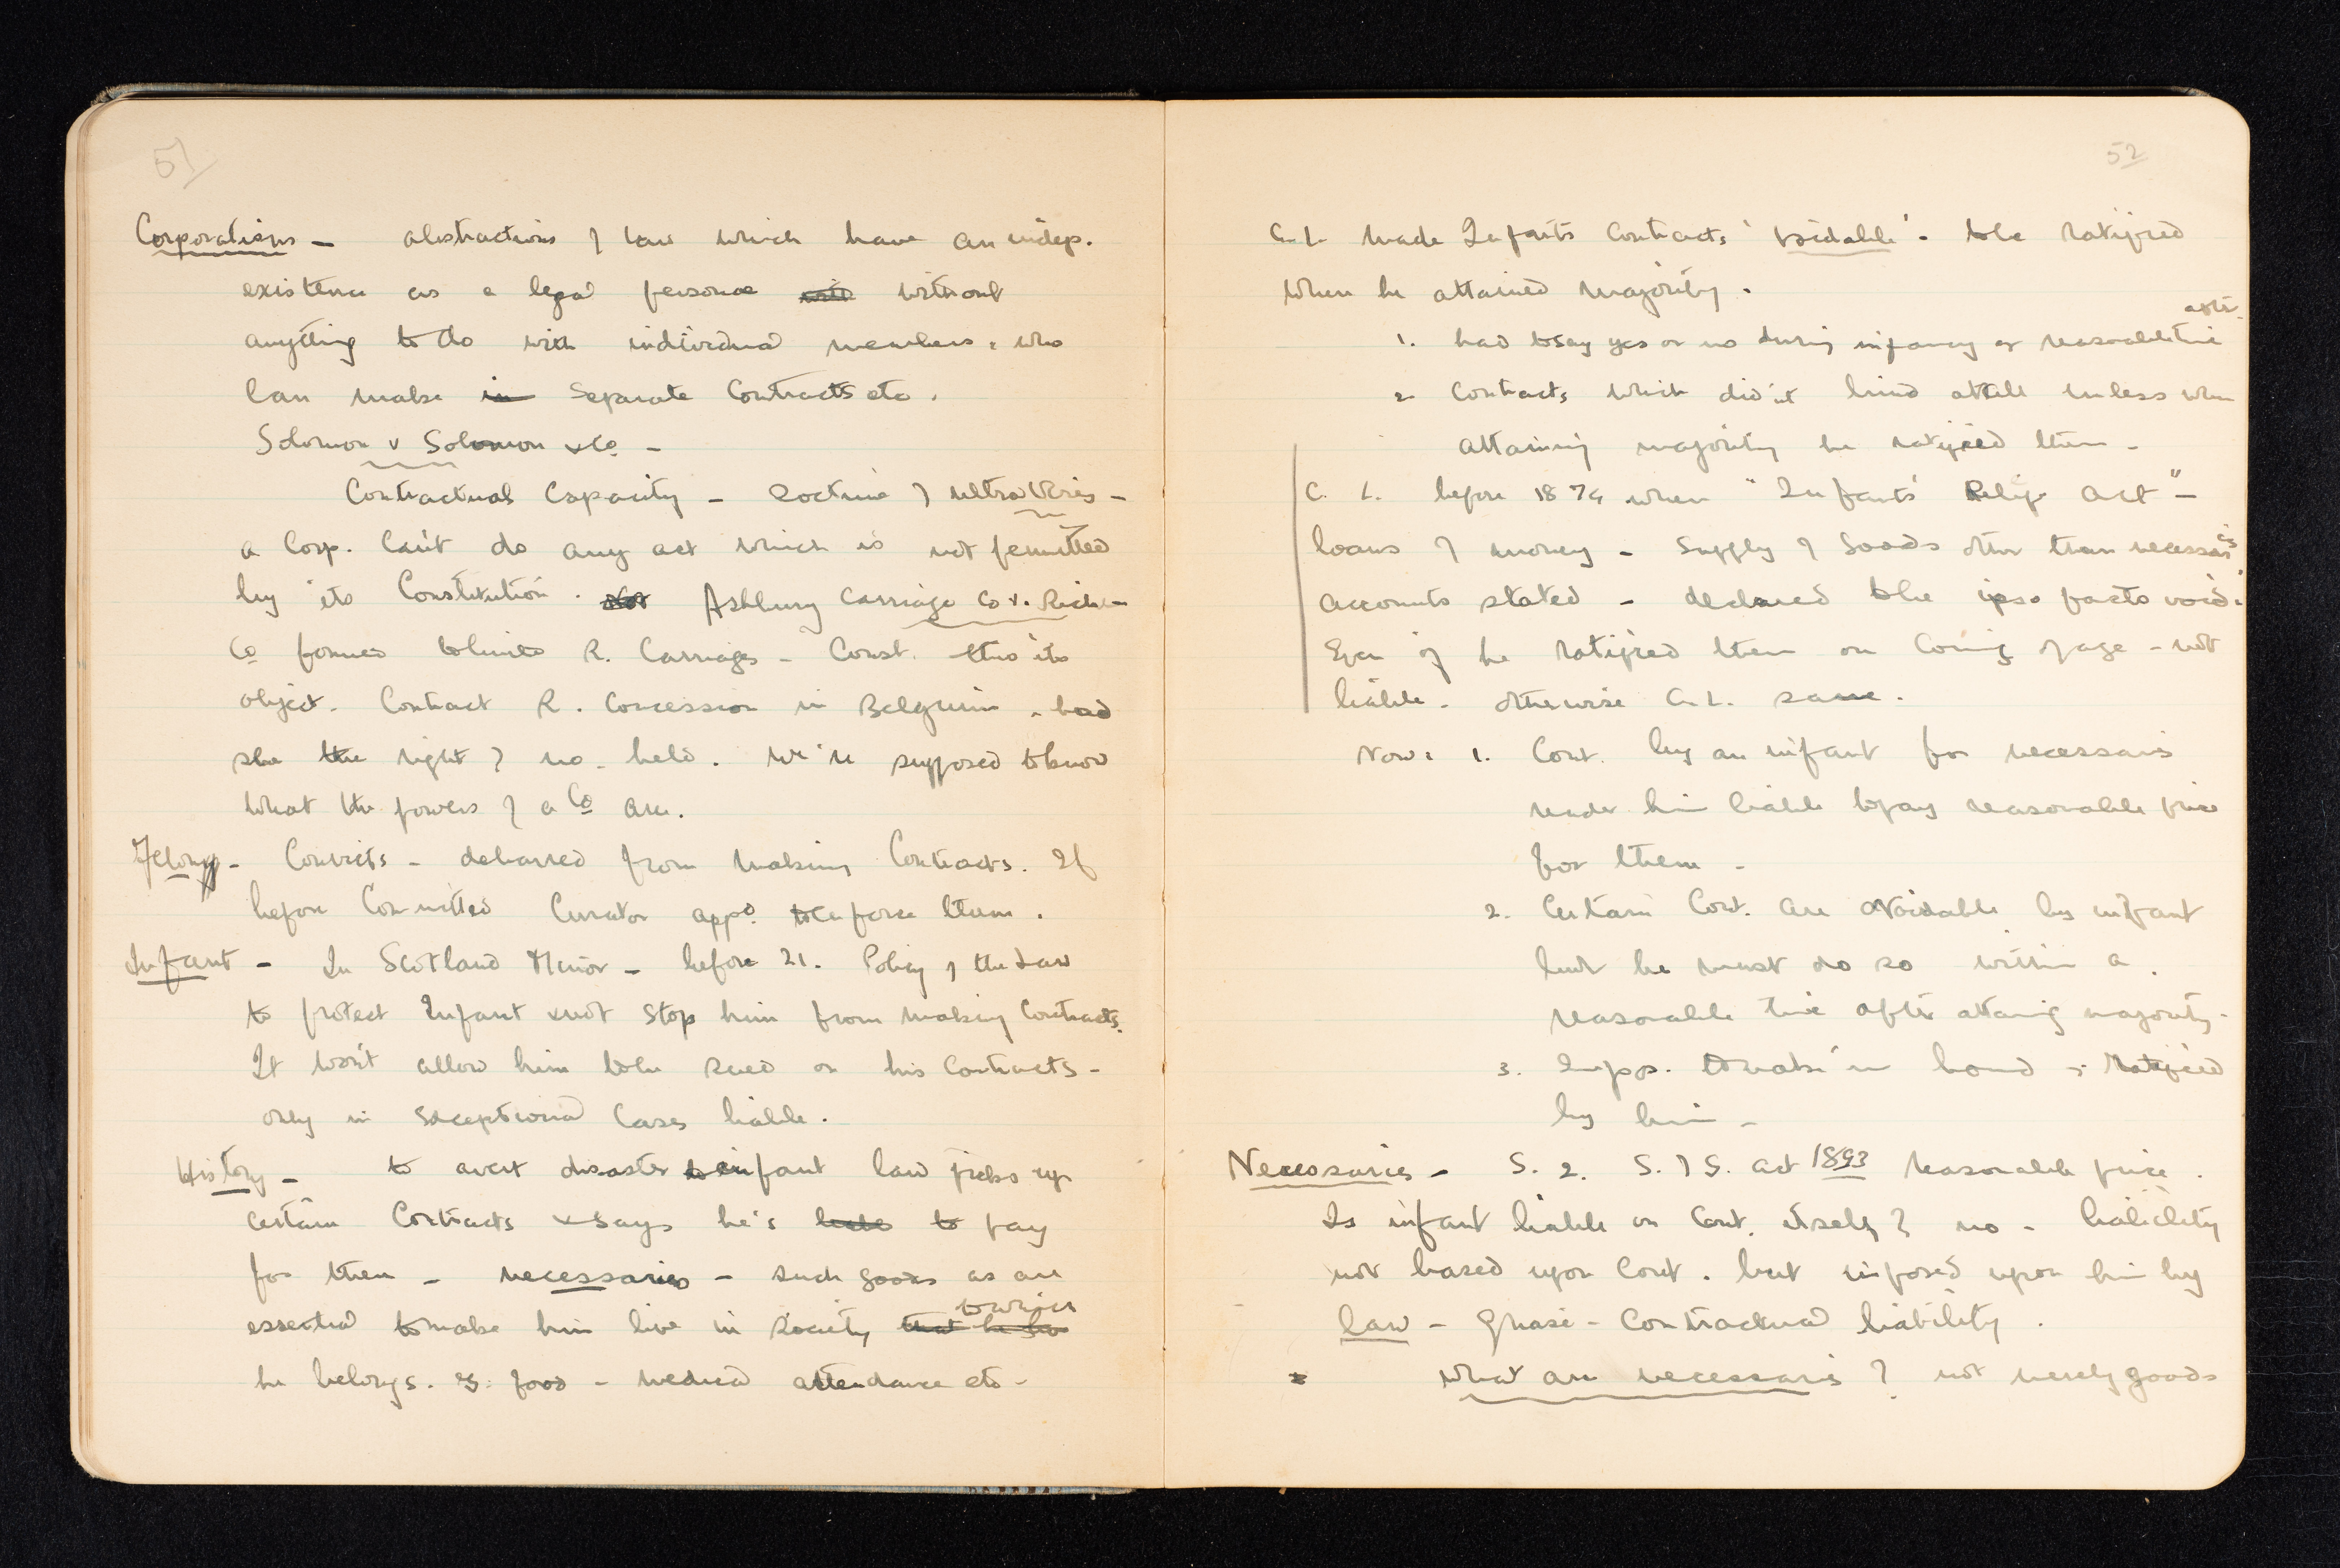 51
Corporations - abstractions of law which have an indep.
existence as a legal personae with without
anything to do with individual members: who
can make in separate Contracts etc.
Solomon v Solomon & Co -
Contractual Capacity - Doctrine of Ultra Vires -
a Corp. can't do any act which is not permitted
by its Constitution. Not Ashbury Carriage Co v. Riche -
Co formed to build R. Carriages - Const. thus its
object. Contract R. Concession in Belgium - had
she the right? no - held. We're supposed to know
what the powers of a Co are.
Felony - Convicts - debarred from making Contracts. If
before Committed Curator appd. to enforce them.
Infant - In Scotland Minor - before 21. Policy of the Law
to protect Infant & not stop him from making Contracts.
It won't allow him to be sued on his Contracts -
only in exceptional Cases liable.
History - to avert disaster to infant law picks up
certain Contracts & says he's to pay
for them - necessaries - such goods as are
to which
essential to make him live in society that he has
he belongs. eg. food - medical attendance etc -
52
C.L. made Infants Contracts 'voidable' - to be ratified
when he attained majority.
after
1. had to say yes or no during infancy or reasonable time
2. Contracts which didn't bind at all unless when
attaining majority he ratified them -
C. L. before 1874 when "Infants' Relief Act" -
loans of money - supply of goods other than necessaries
accounts stated - declared to be ipso facto void.
Even if he ratified them on coming of age - not
liable - otherwise C.L. same.
Now: 1. Cont. by an infant for necessaries
render him liable to pay reasonable price
for them -
2. Certain Cont. are avoidable by infant
but he must do so within a
reasonable time after attaing majority -
3. Impos. to make 'm bound if ratified
by him -
Necessaries - S. 2. S. of G. Act 1893 reasonable price.
Is infant liable on Cont. itself? no - liability
not based upon Cont. but imposed upon him by
law - Quasi-Contractual liability.
What are necessaries? not merely goods